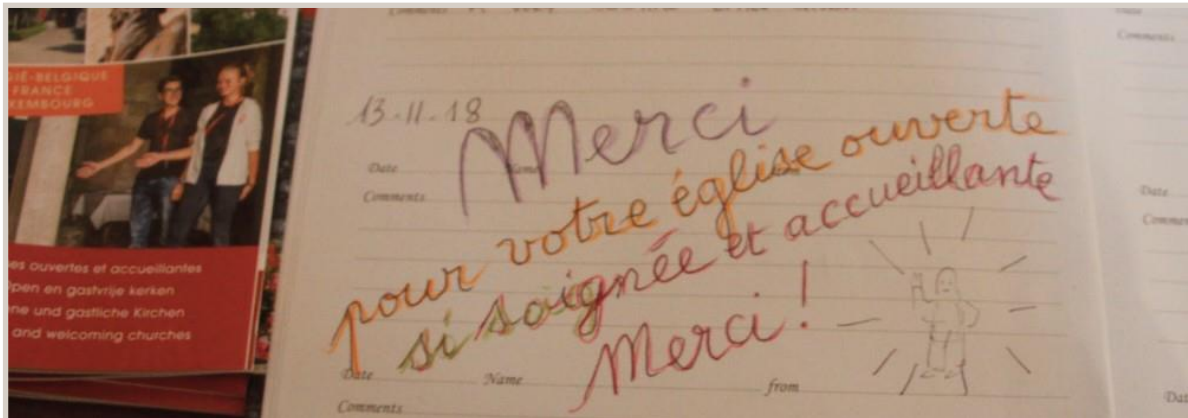 Comments
GIË-BELGIQUE
FRANCE
XEMBOURG
es ouvertes et accueillantes
pen en gastvrije kerken
ne und gastliche Kirchen
and welcoming churches
13-11-18
Merci
Date
Comments
pour votre église ouverte
si soignée et accueillante
Merci!
Date Name from
Comments
Date
Comments
Date
Commen
Dat